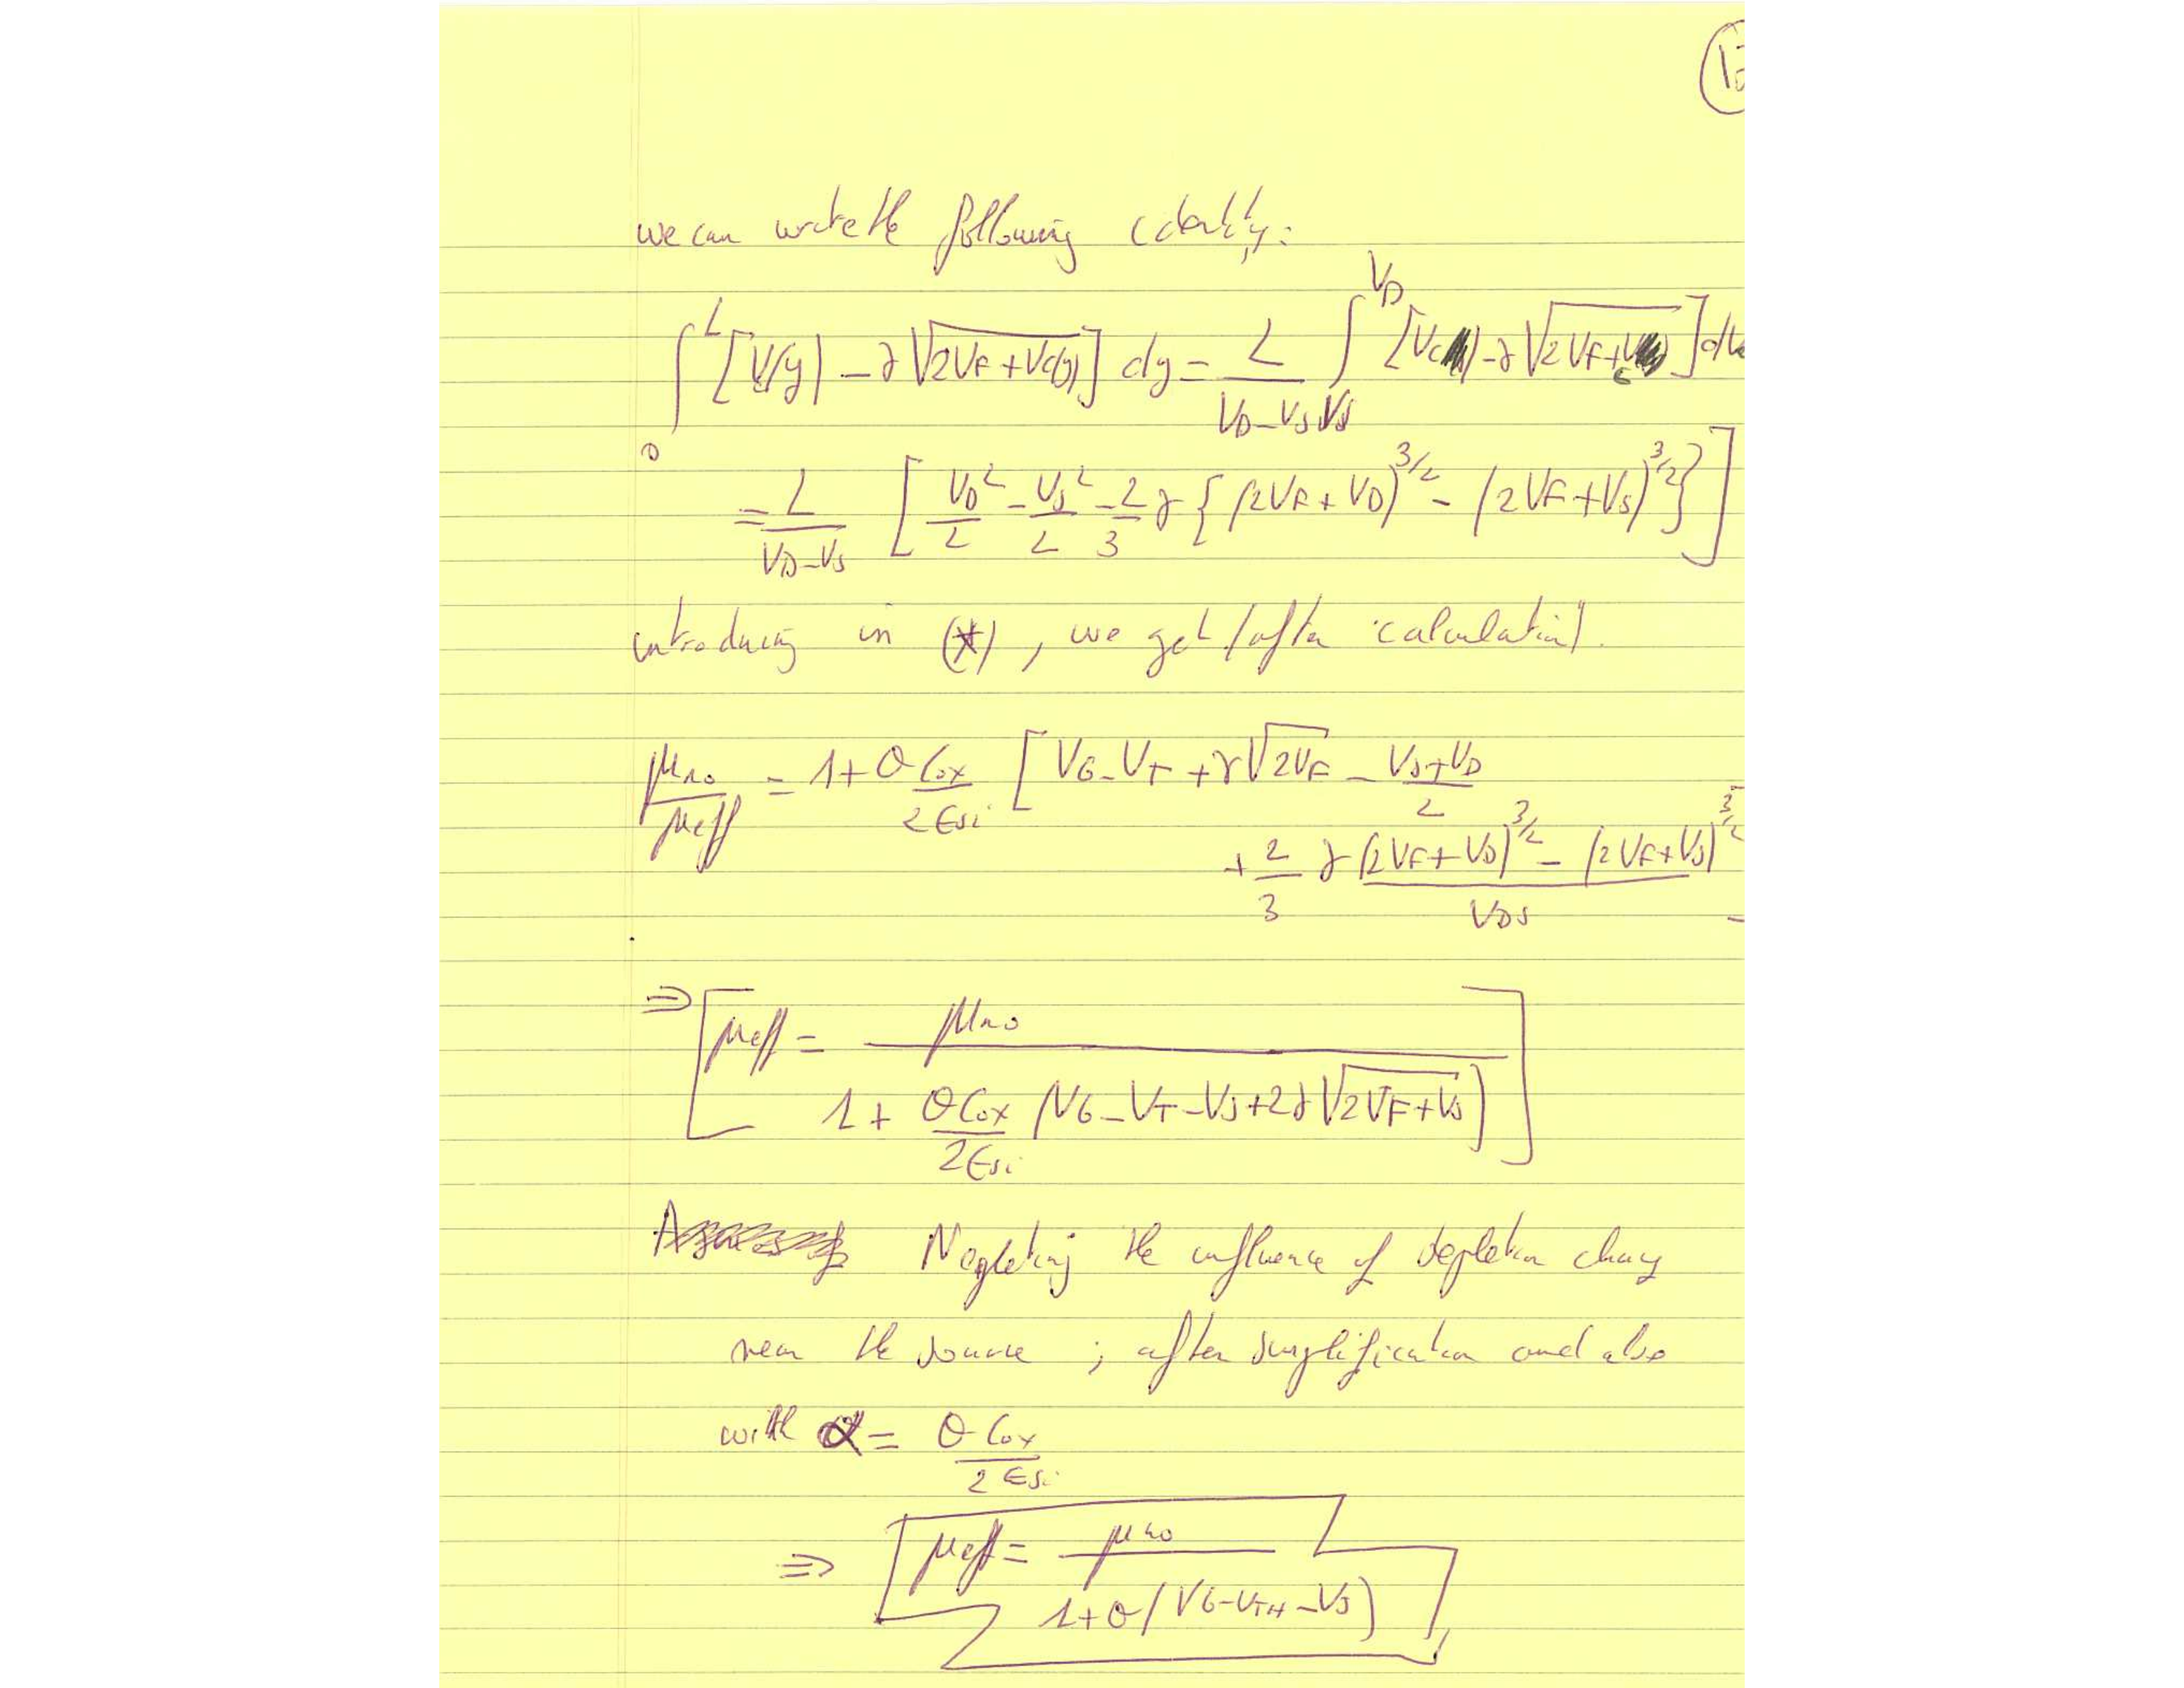 we can write the following identity:
∫₀ᴸ [V(y) − γ√(2VF + Vc(y))] dy = L/(VD − VS) ∫_VS^VD [Vc − γ√(2VF + Vc)] dVc
= L/(VD − VS) [VD²/2 − VS²/2 − 2/3 γ {(2VF + VD)^3/2 − (2VF + VS)^3/2}]
introducing in (*), we get (after calculation).
μno/μeff = 1 + θ Cox/2εsi [VG − VT + γ√2VF − (VS + VD)/2
+ 2/3 γ ((2VF + VD)^3/2 − (2VF + VS)^3/2)/VDS
⇒ [μeff = μno / (1 + θCox/2εsi (VG − VT − VS + 2γ√(2VF + VS)))]
Neglecting the influence of depletion charg
near the source ; after simplification and also
with α = θ Cox/2 εsi
⇒ μeff = μno / (1 + θ (VG − VTH − VS))